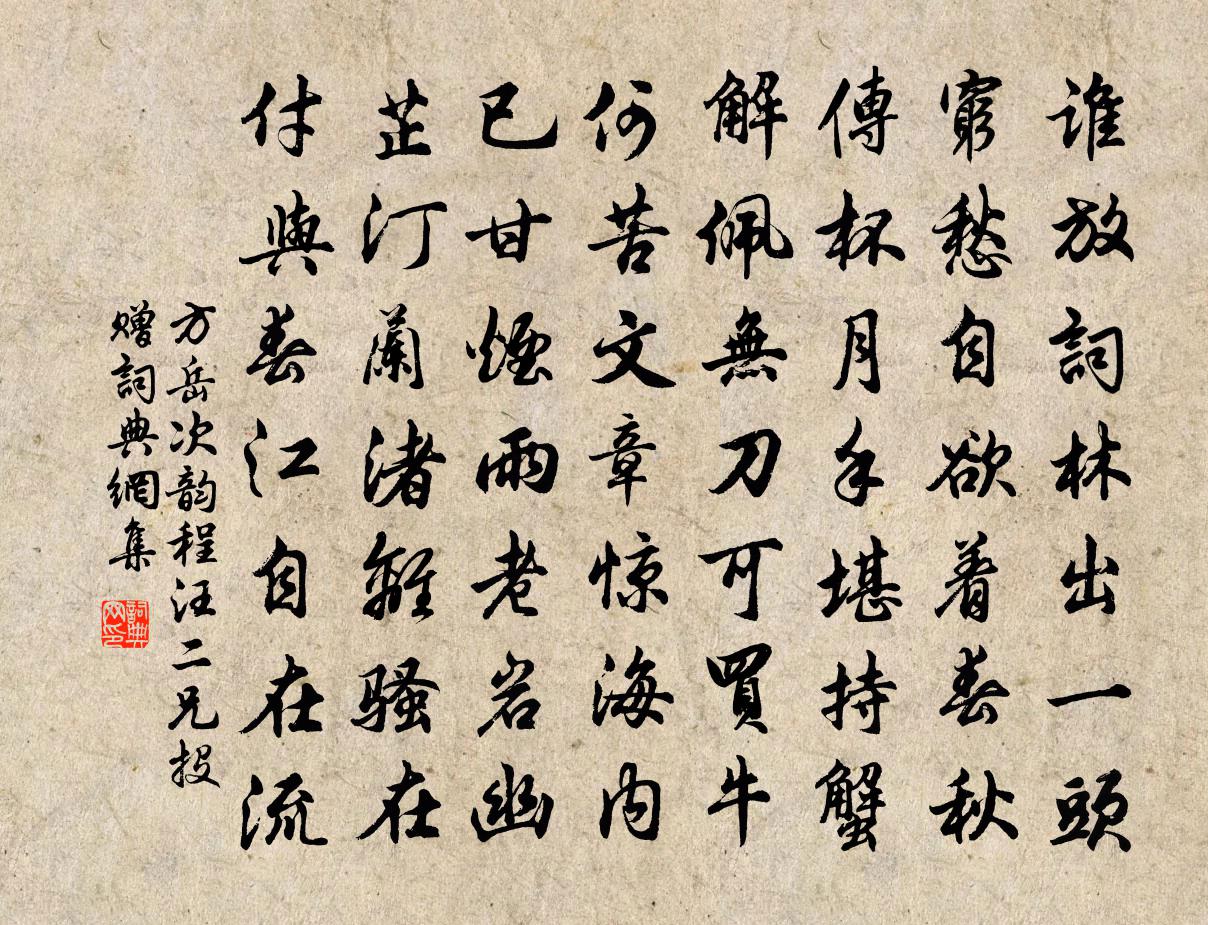 誰放詞林出一頭
窮愁自欲着春秋
傳杯月手堪持蟹
解佩無刀可買牛
何苦文章惊海内
已甘煙雨老岩幽
芷汀蘭渚離騷在
付與春江自在流
方岳次韵程汪二兄投
贈詞典網集
詞典
网印